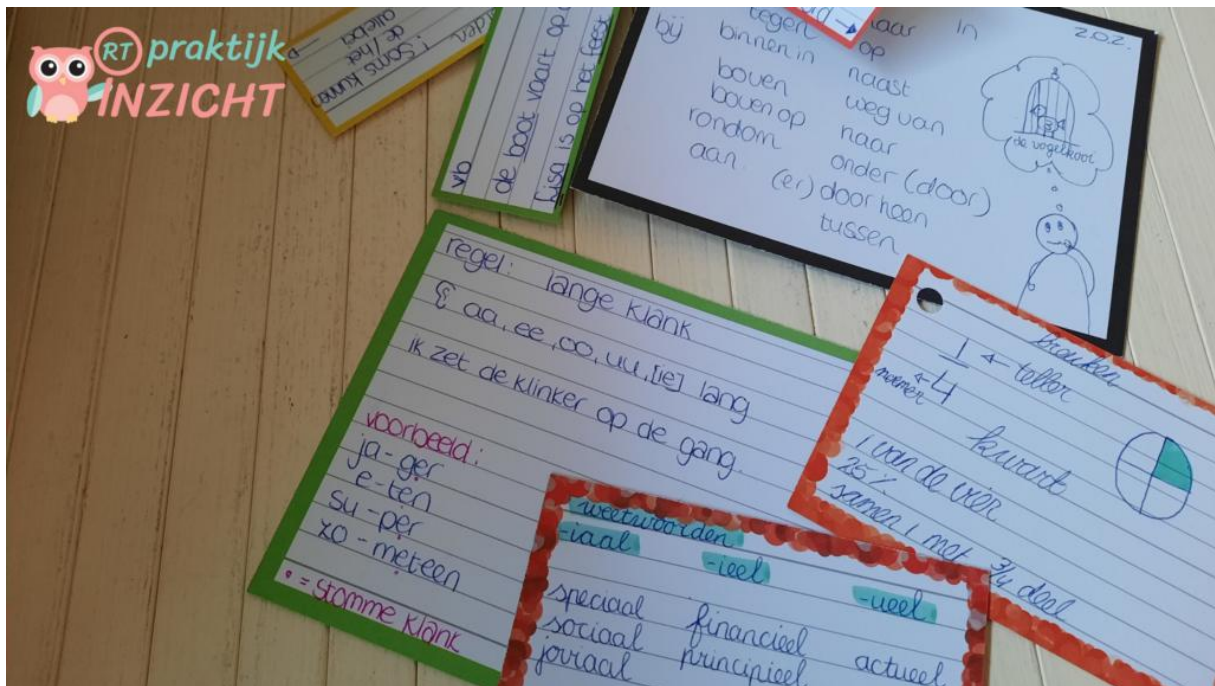 RT praktijk
INZICHT
soms kunnen
de/het
vb
de boot vaart op
Lisa is op het feest
z.o.z.
tegen naar in
bij binnen in op
boven naast
bovenop weg van
rondom naar
aan. onder (door)
(er) doorheen
tussen
de vogelkooi
regel: lange klank
aa, ee, oo, uu, [ie] lang
ik zet de klinker op de gang.
voorbeeld:
ja-ger
e-ten
su-per
zo-meteen
• = stomme klank
breuken
1 ← teller
noemer ← 4
kwart
1 van de vier
25%
samen 1 met 3/4 deel
weetwoorden
-iaal -ieel -ueel
speciaal financieel actueel
sociaal principieel
joviaal